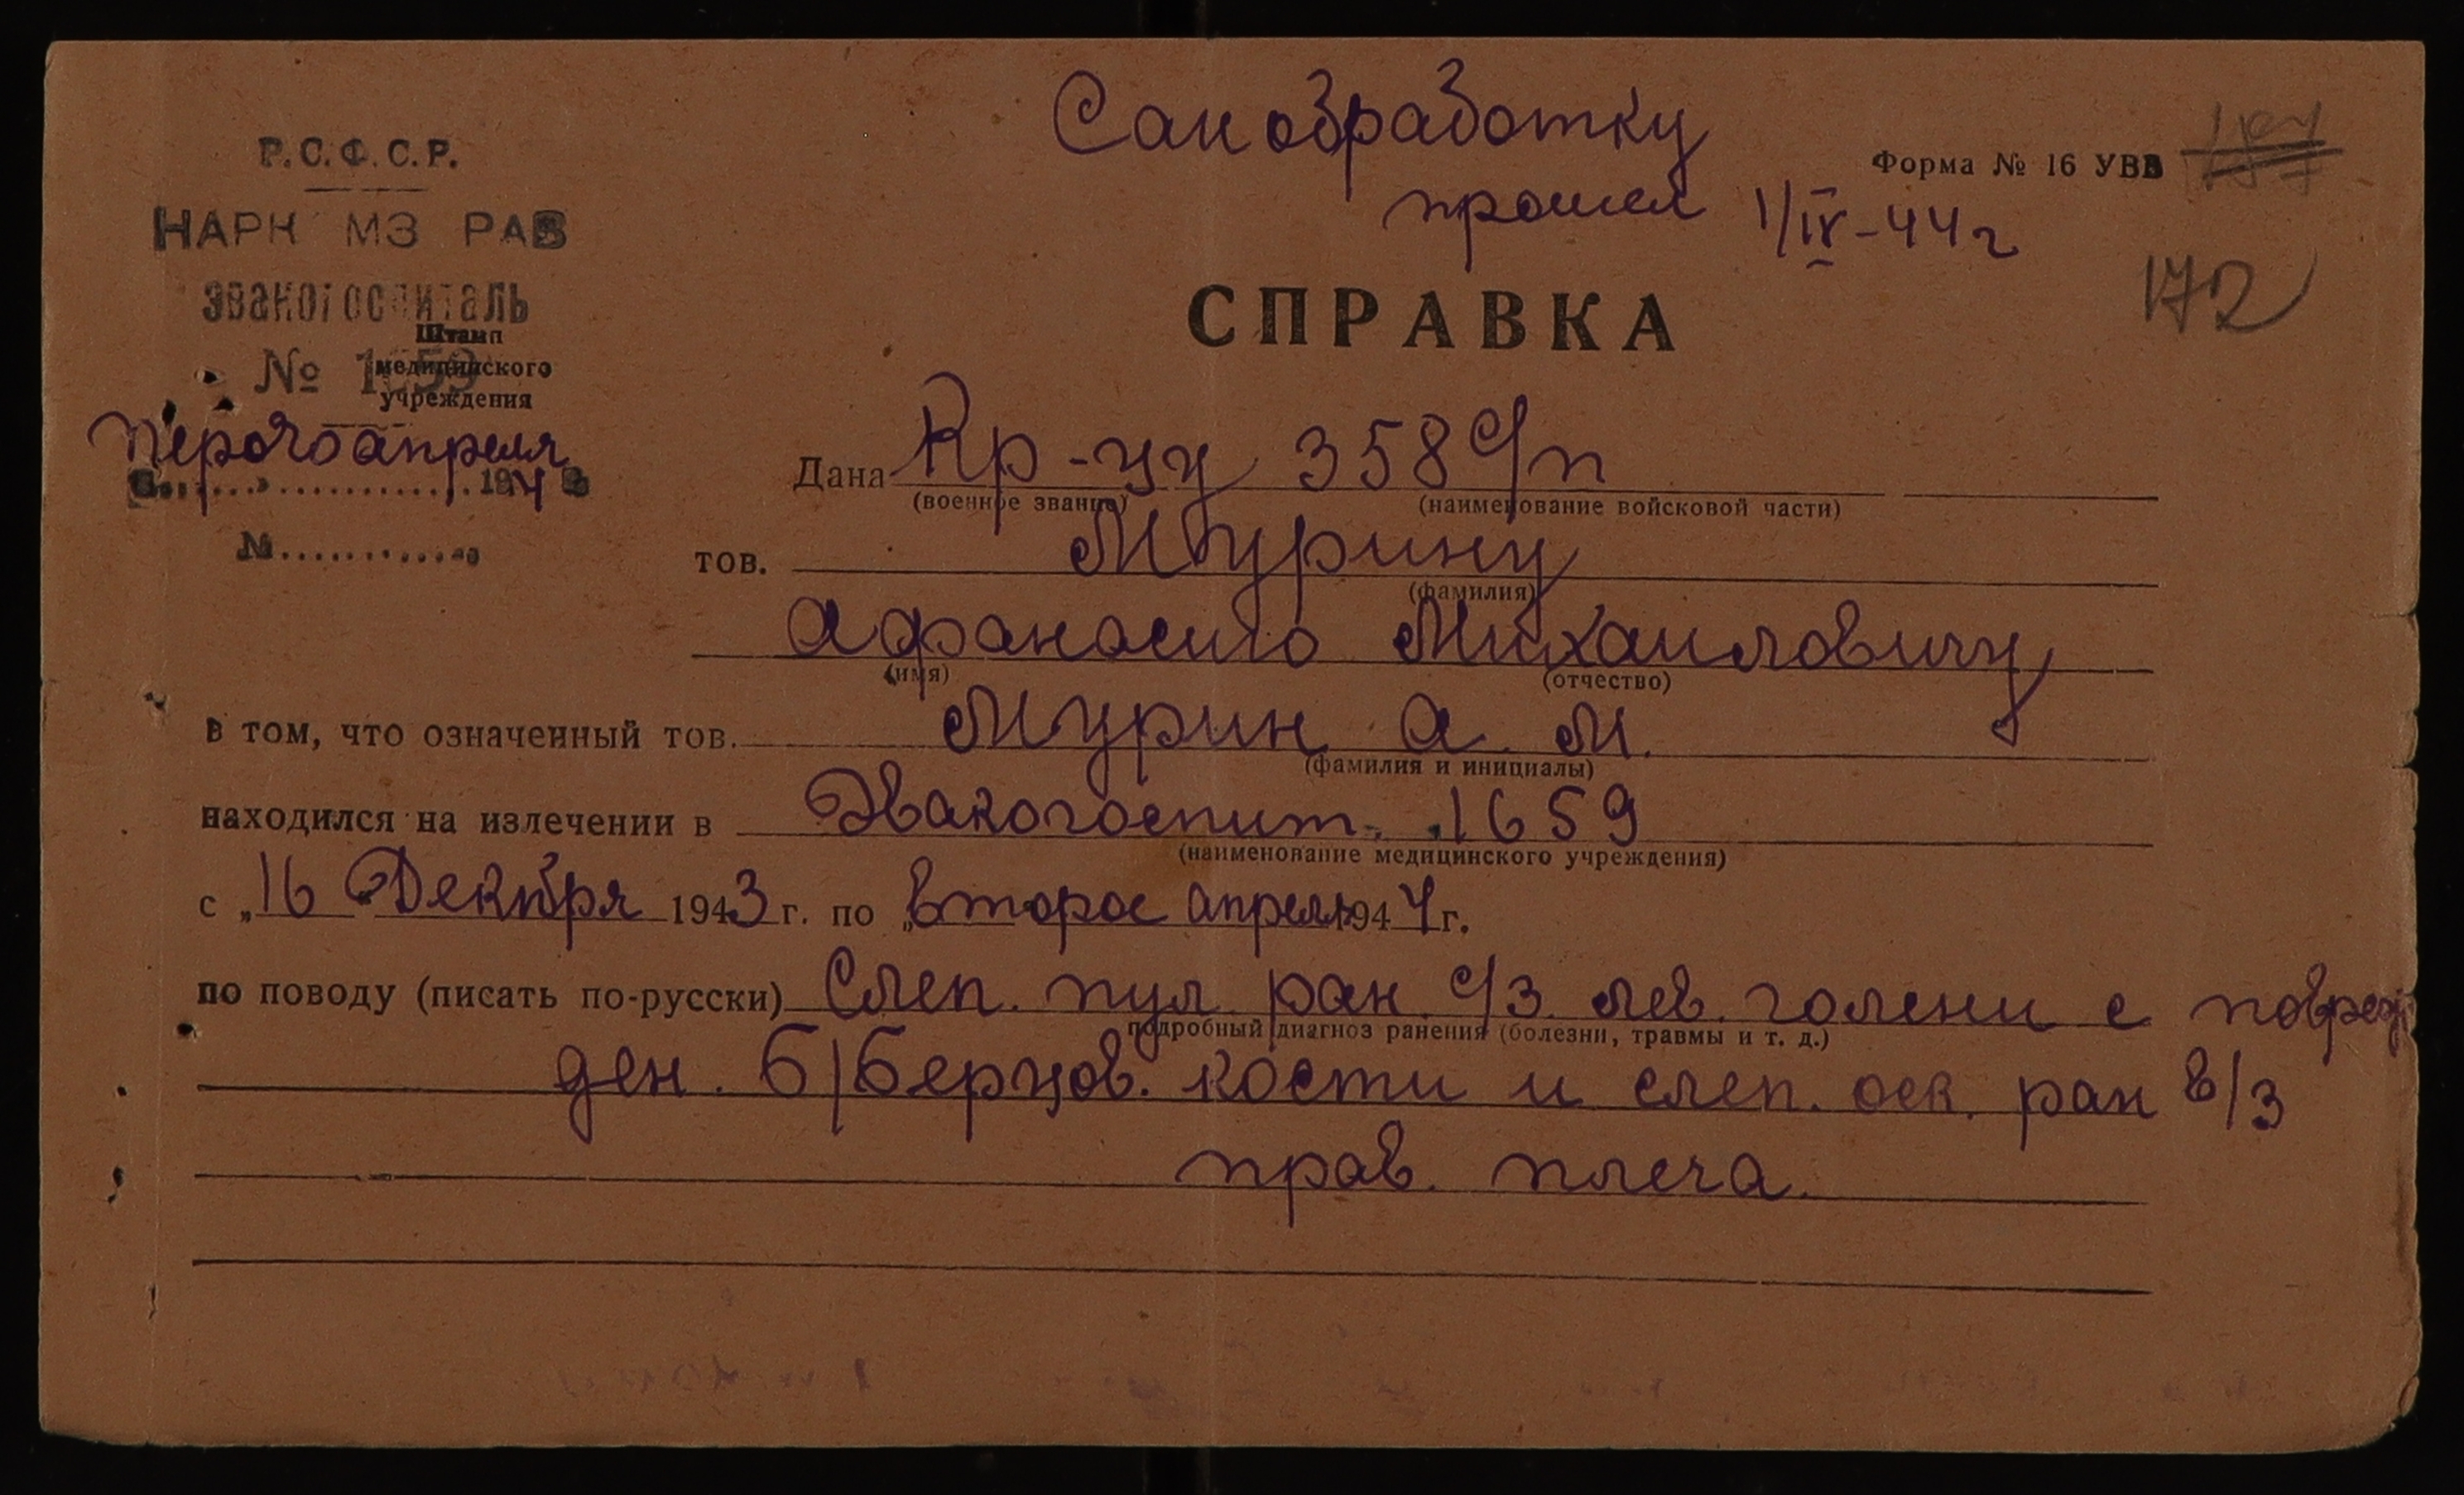 Санобработку
прошел 1/IV-44 г
Форма № 16 УВВ
172
Р.С.Ф.С.Р.
НАРК МЗ РАВ
Эвакогоспиталь
№ 1659
Штамп
медицинского
учреждения
Первого апреля
194 4
№
СПРАВКА
Дана Кр-цу 358 с/п
(военное звание) (наименование войсковой части)
тов. Мурину
(фамилия)
Афанасию Михаиловичу
(имя) (отчество)
в том, что означенный тов. Мурин А. М.
(фамилия и инициалы)
находился на излечении в Эвакогоспит. 1659
(наименование медицинского учреждения)
с „16 Декабря 1943 г. по „второе апреля 1944 г.
по поводу (писать по-русски) Слеп. пул. ран. с/з. лев. голени с повреж
подробный диагноз ранения (болезни, травмы и т. д.)
ден. б/берцов. кости и слеп. оск. ран в/з
прав. плеча.